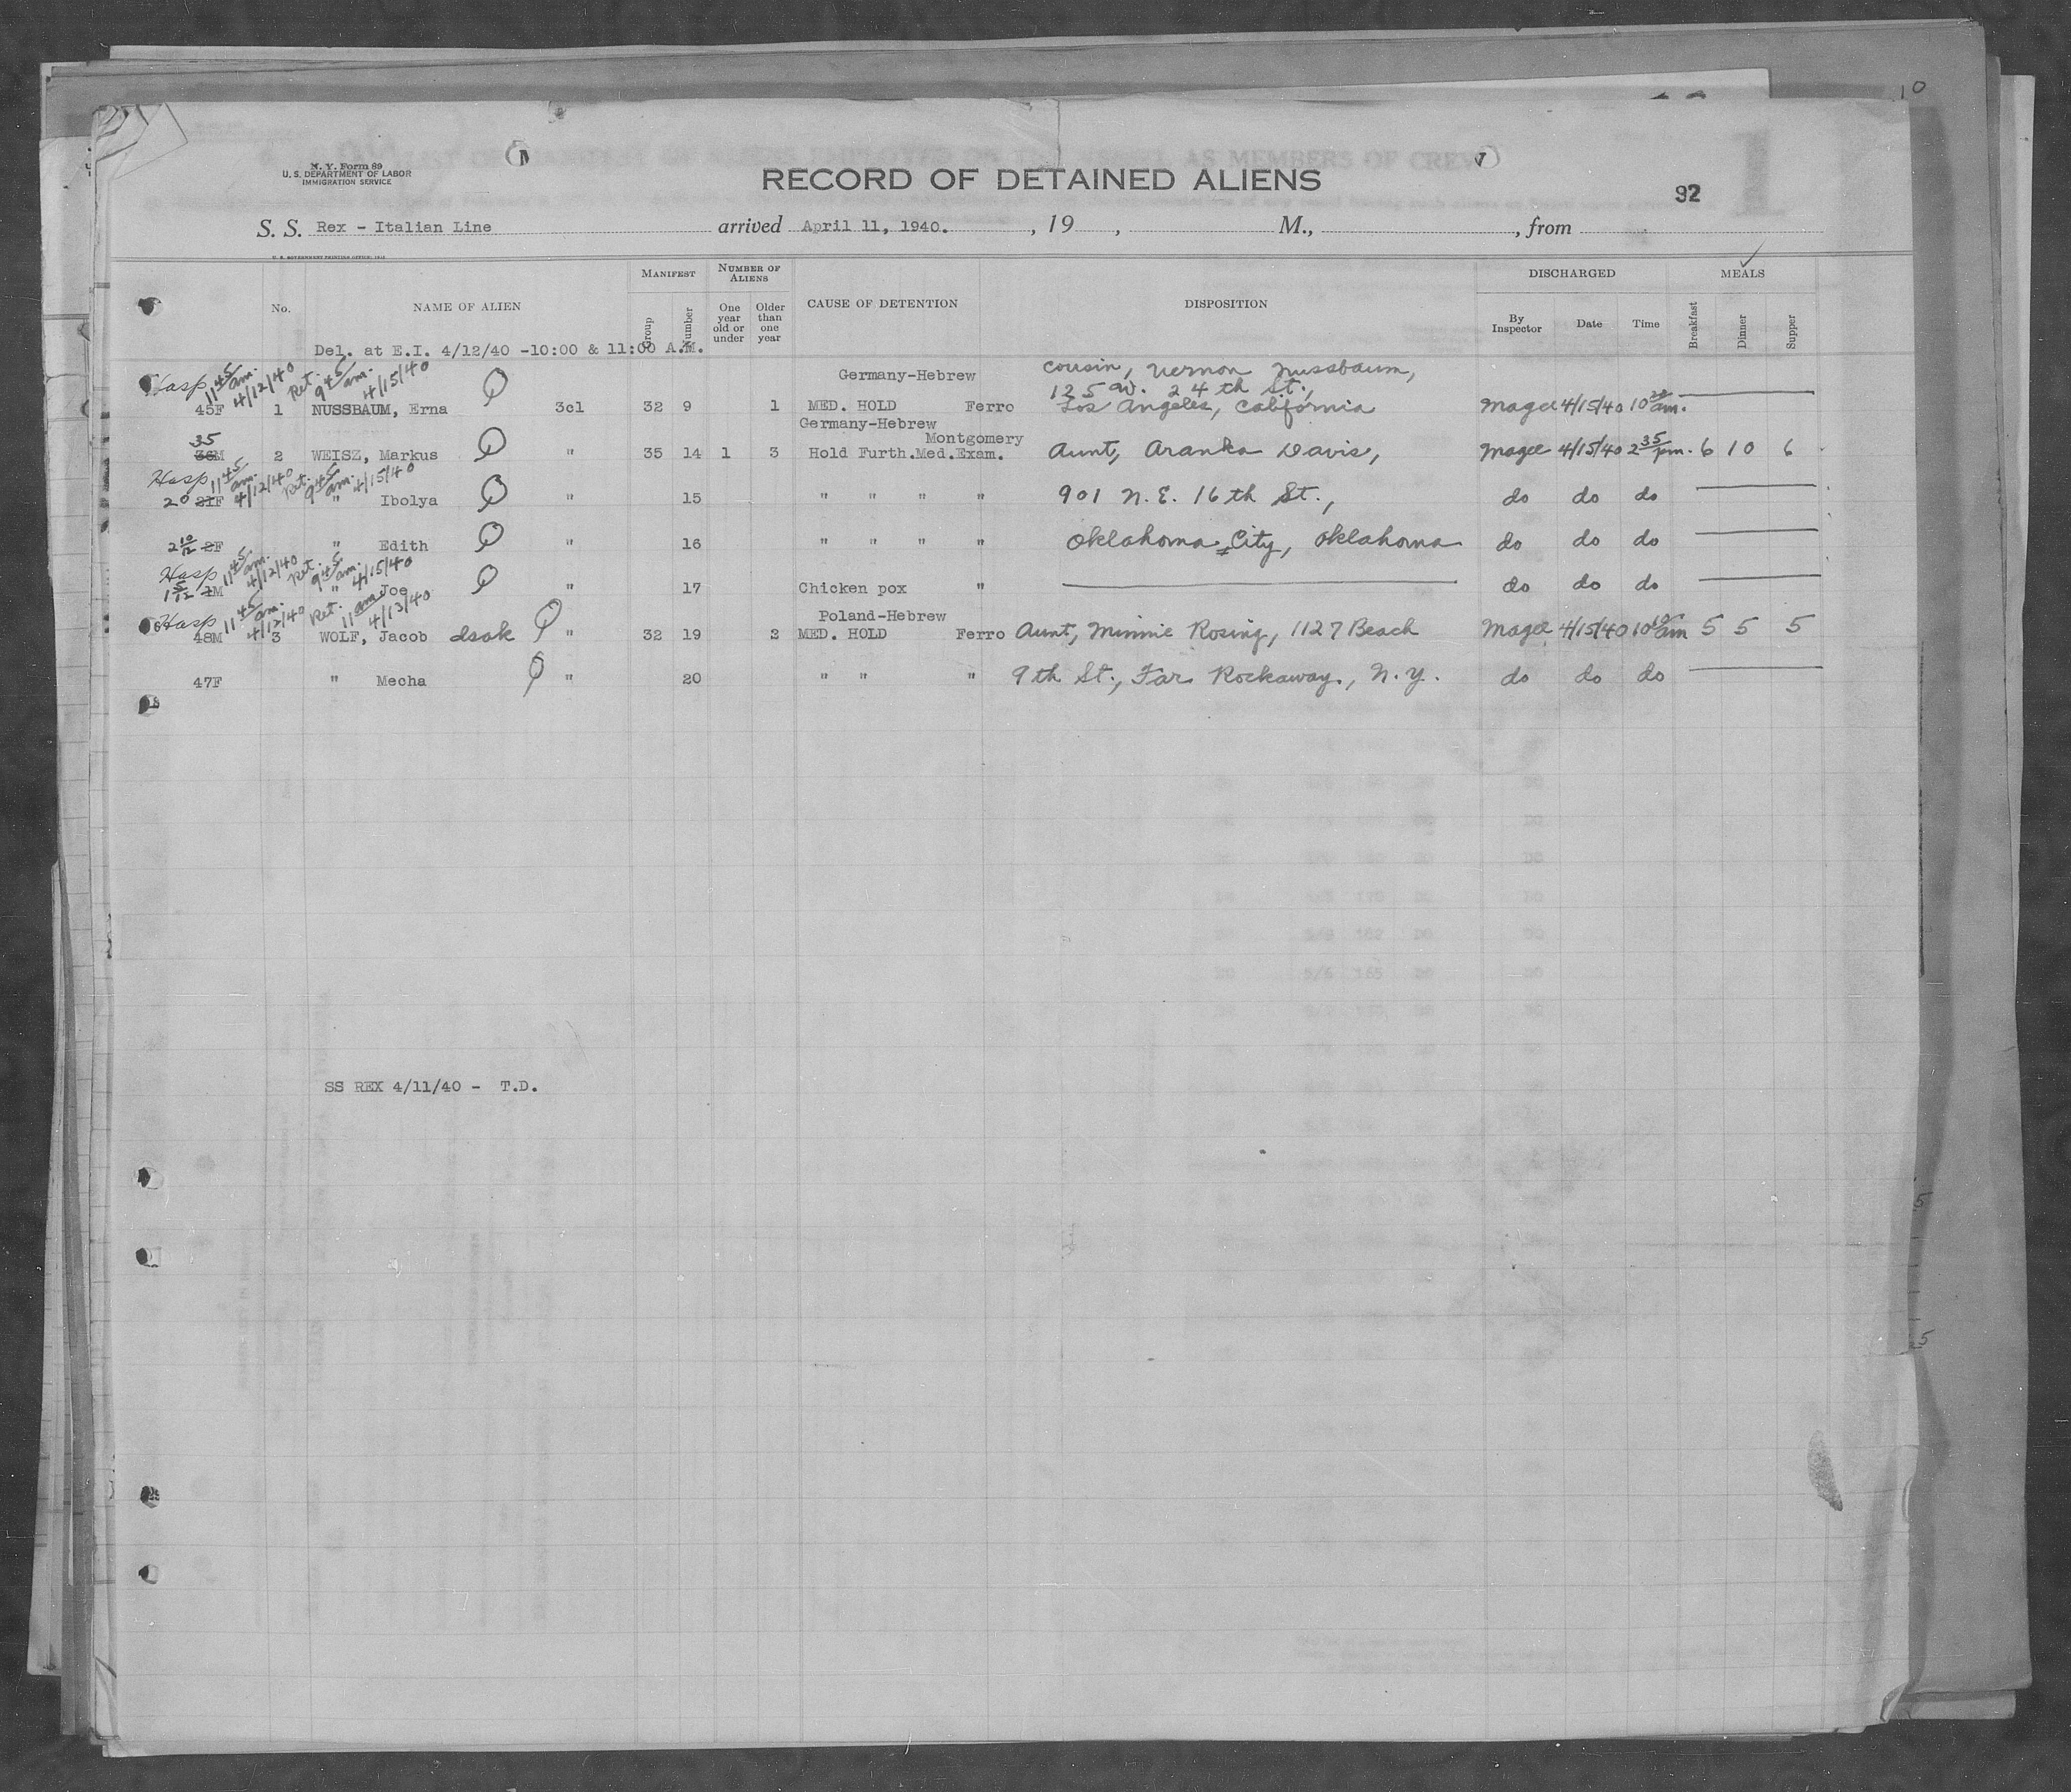 N. Y. Form 89
U. S. DEPARTMENT OF LABOR
IMMIGRATION SERVICE
RECORD OF DETAINED ALIENS
92
S. S. Rex - Italian Line arrived April 11, 1940. , 19 , M., , from
U. S. GOVERNMENT PRINTING OFFICE
No. NAME OF ALIEN MANIFEST Group Number NUMBER OF ALIENS One year old or under Older than one year CAUSE OF DETENTION DISPOSITION DISCHARGED By Inspector Date Time MEALS Breakfast Dinner Supper
Del. at E.I. 4/12/40 -10:00 & 11:00 A.M.
Hosp 11 45 am. 4/12/40 Ret. 9 45 am. 4/15/40 Germany-Hebrew Cousin, Vernon Nussbaum,
125 W. 24th St.,
45F 1 NUSSBAUM, Erna 3cl 32 9 1 MED. HOLD Ferro Los Angeles, California Magee 4/15/40 10 am.
Germany-Hebrew
35 Montgomery
36M 2 WEISZ, Markus " 35 14 1 3 Hold Furth.Med.Exam. Aunt, Aranka Davis, Magee 4/15/40 2 35 pm. 6 10 6
Hosp 11 45 am. 4/12/40 Ret. 9 45 am. 4/15/40
20 21F " Ibolya " 15 " " " " 901 N.E. 16th St., do do do
2 10/12 2F " Edith " 16 " " " " Oklahoma City, Oklahoma do do do
Hosp 11 45 am. 4/12/40 Ret. 9 45 am. 4/15/40
1 5/12 1M " Joe " 17 Chicken pox " do do do
Hosp 11 45 am. 4/12/40 Ret. 11 am 4/13/40 Poland-Hebrew
48M 3 WOLF, Jacob Isak " 32 19 2 MED. HOLD Ferro Aunt, Minnie Rosing, 1127 Beach Magee 4/15/40 10 10 am 5 5 5
47F " Mecha " 20 " " " 9th St., Far Rockaway, N.Y. do do do
SS REX 4/11/40 - T.D.